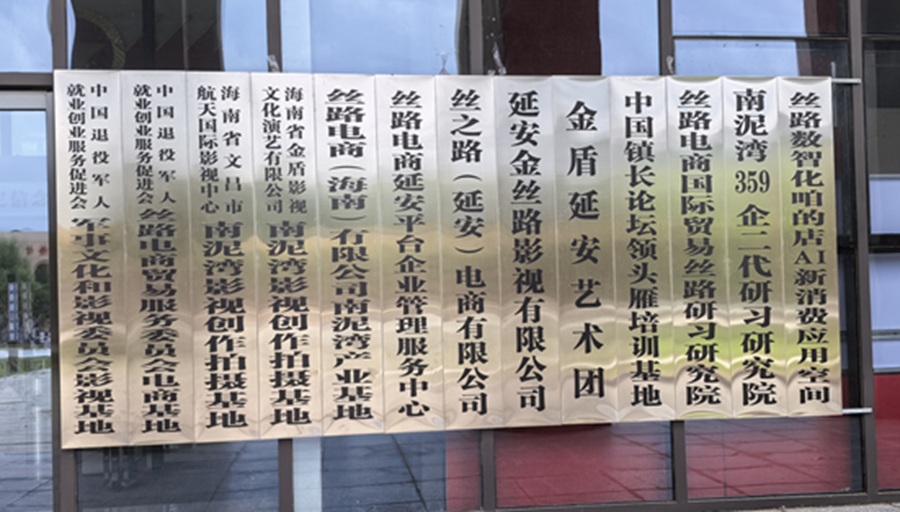 中国退役军人
就业创业服务促进会
军事文化和影视委员会影视基地
中国退役军人
就业创业服务促进会
丝路电商贸易服务委员会电商基地
海南省文昌市
航天国际影视中心
南泥湾影视创作拍摄基地
海南省金盾影视
文化演艺有限公司
南泥湾影视创作拍摄基地
丝路电商（海南）有限公司南泥湾产业基地
丝路电商延安平台企业管理服务中心
丝之路（延安）电商有限公司
延安金丝路影视有限公司
金盾延安艺术团
中国镇长论坛领头雁培训基地
丝路电商国际贸易丝路研习研究院
南泥湾359企二代研习研究院
丝路数智化咱的店AI新消费应用空间